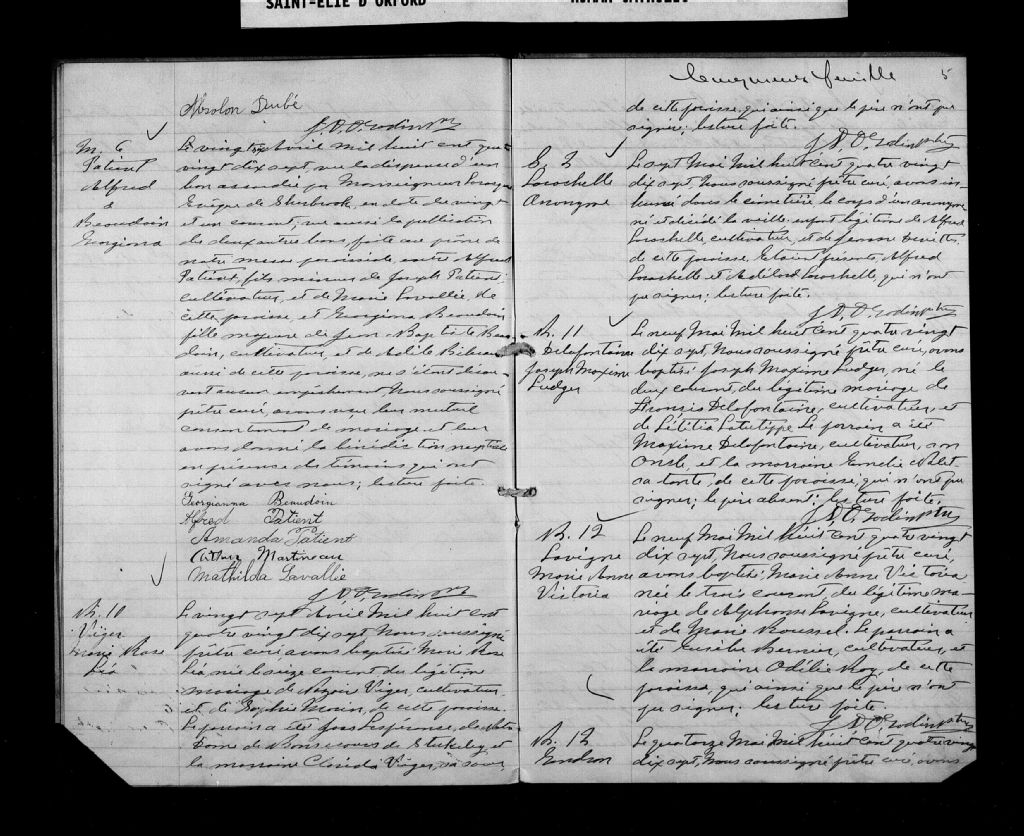 SAINT-ELIE D'ORFORD
Absolon Dubé
J. A. O. Godin ptre
M. 6
Patient
Alfred
&
Beaudoin
Georgina
Le vingt six Avril mil huit cent quatre
vingt dix sept, vu la dispense d'un
ban accordée par Monseigneur Larocque
Evêque de Sherbrook, en date du vingt
et un courant, vu aussi la publication
des deux autres bans faite au prône de
notre messe paroissiale, entre Alfred
Patient, fils mineur de Joseph Patient
cultivateur, et de Marie Lavallée, de
cette paroisse, et Georgina Beaudoin
fille majeure de Jean-Baptiste Beau
doin, cultivateur, et de Adile
aussi de cette paroisse, ne s'étant décou
vert aucun empêchement Nous soussigné
prêtre curé, avons reçu leur mutuel
consentement de mariage et leur
avons donné la bénédiction nuptiale
en présence des témoins qui ont
signé avec nous; lecture faite.
Georgianna Beaudoin
Alfred Patient
Amanda Patient
Arthur Martineau
Mathilda Lavallie
J. A. O. Godin ptre
B. 10
Viger
Marie Rose
Léa
Le vingt sept Avril mil huit cent
quatre vingt dix sept Nous soussigné
prêtre curé avons baptisé Marie Rose
Léa, née le seize courant du légitime
mariage de Viger, cultivateur,
et de Sophie Morin, de cette paroisse.
Le parrain a été de Notre
Dame de Bonsecours de Stukeley et
la marraine Viger, sa soeur
Cinquième feuille 5
de cette paroisse, qui ainsi que le père n'ont pu
signer; lecture faite.
J. A. O. Godin ptre
S. 2
Larochelle
Anonyme
Le sept Mai Mil huit cent quatre vingt
dix sept, Nous soussigné prêtre curé, avons in
humé dans le cimetière le corps d'un anonyme
né et décédé la veille, enfant légitime de Alfred
Larochelle, cultivateur, et de
de cette paroisse. Etaient présents, Alfred
Larochelle et Adélard Larochelle, qui n'ont
pu signer; lecture faite.
J. A. O. Godin ptre
B. 11
Delafontaine
Joseph Maxime
Ludger
Le neuf Mai Mil huit cent quatre vingt
dix sept, Nous soussigné prêtre curé, avons
baptisé Joseph Maxime Ludger, né le
deux courant du légitime mariage de
François Delafontaine, cultivateur, et
de Létitia Le parrain a été
Maxime Delafontaine, cultivateur, son
oncle, et la marraine
sa tante, de cette paroisse, qui n'ont pu
signer; le père absent; lecture faite.
J. A. O. Godin ptre
B. 12
Lavigne
Marie Anne
Victoria
Le neuf Mai Mil huit cent quatre vingt
dix sept, Nous soussigné prêtre curé,
avons baptisé, Marie Anne Victoria
née le trois courant, du légitime ma-
riage de Alphonse Lavigne, cultivateur
et de Marie Roussel. Le parrain a
été Eusèbe Bernier, cultivateur, et
la marraine Odélie Roy, de cette
paroisse, qui ainsi que le père n'ont
pu signer; lecture faite.
J. A. O. Godin ptre
B. 12
Gendron
Le quatorze Mai Mil huit cent quatre vingt
dix sept, Nous soussigné prêtre curé, avons